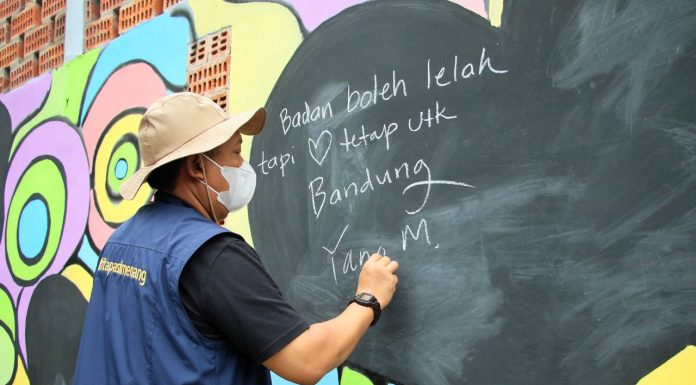 Badan boleh lelah
tapi ♡ tetap utk
Bandung
Yana M.
#kitapastimenang